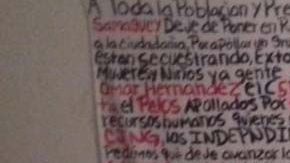 A Toda la Poblacion y Pre
Samaguey Deje de Poner en R
a la ciudadania, Por apollar
estan secuestrando, Exto
Mujeres y Niños ya gente
Omar Hernandez el CS
el Pelos Apollados Por
recursos humanos quienes
CJNG, los INDEPNDI
Pedimos que deje avanzar la